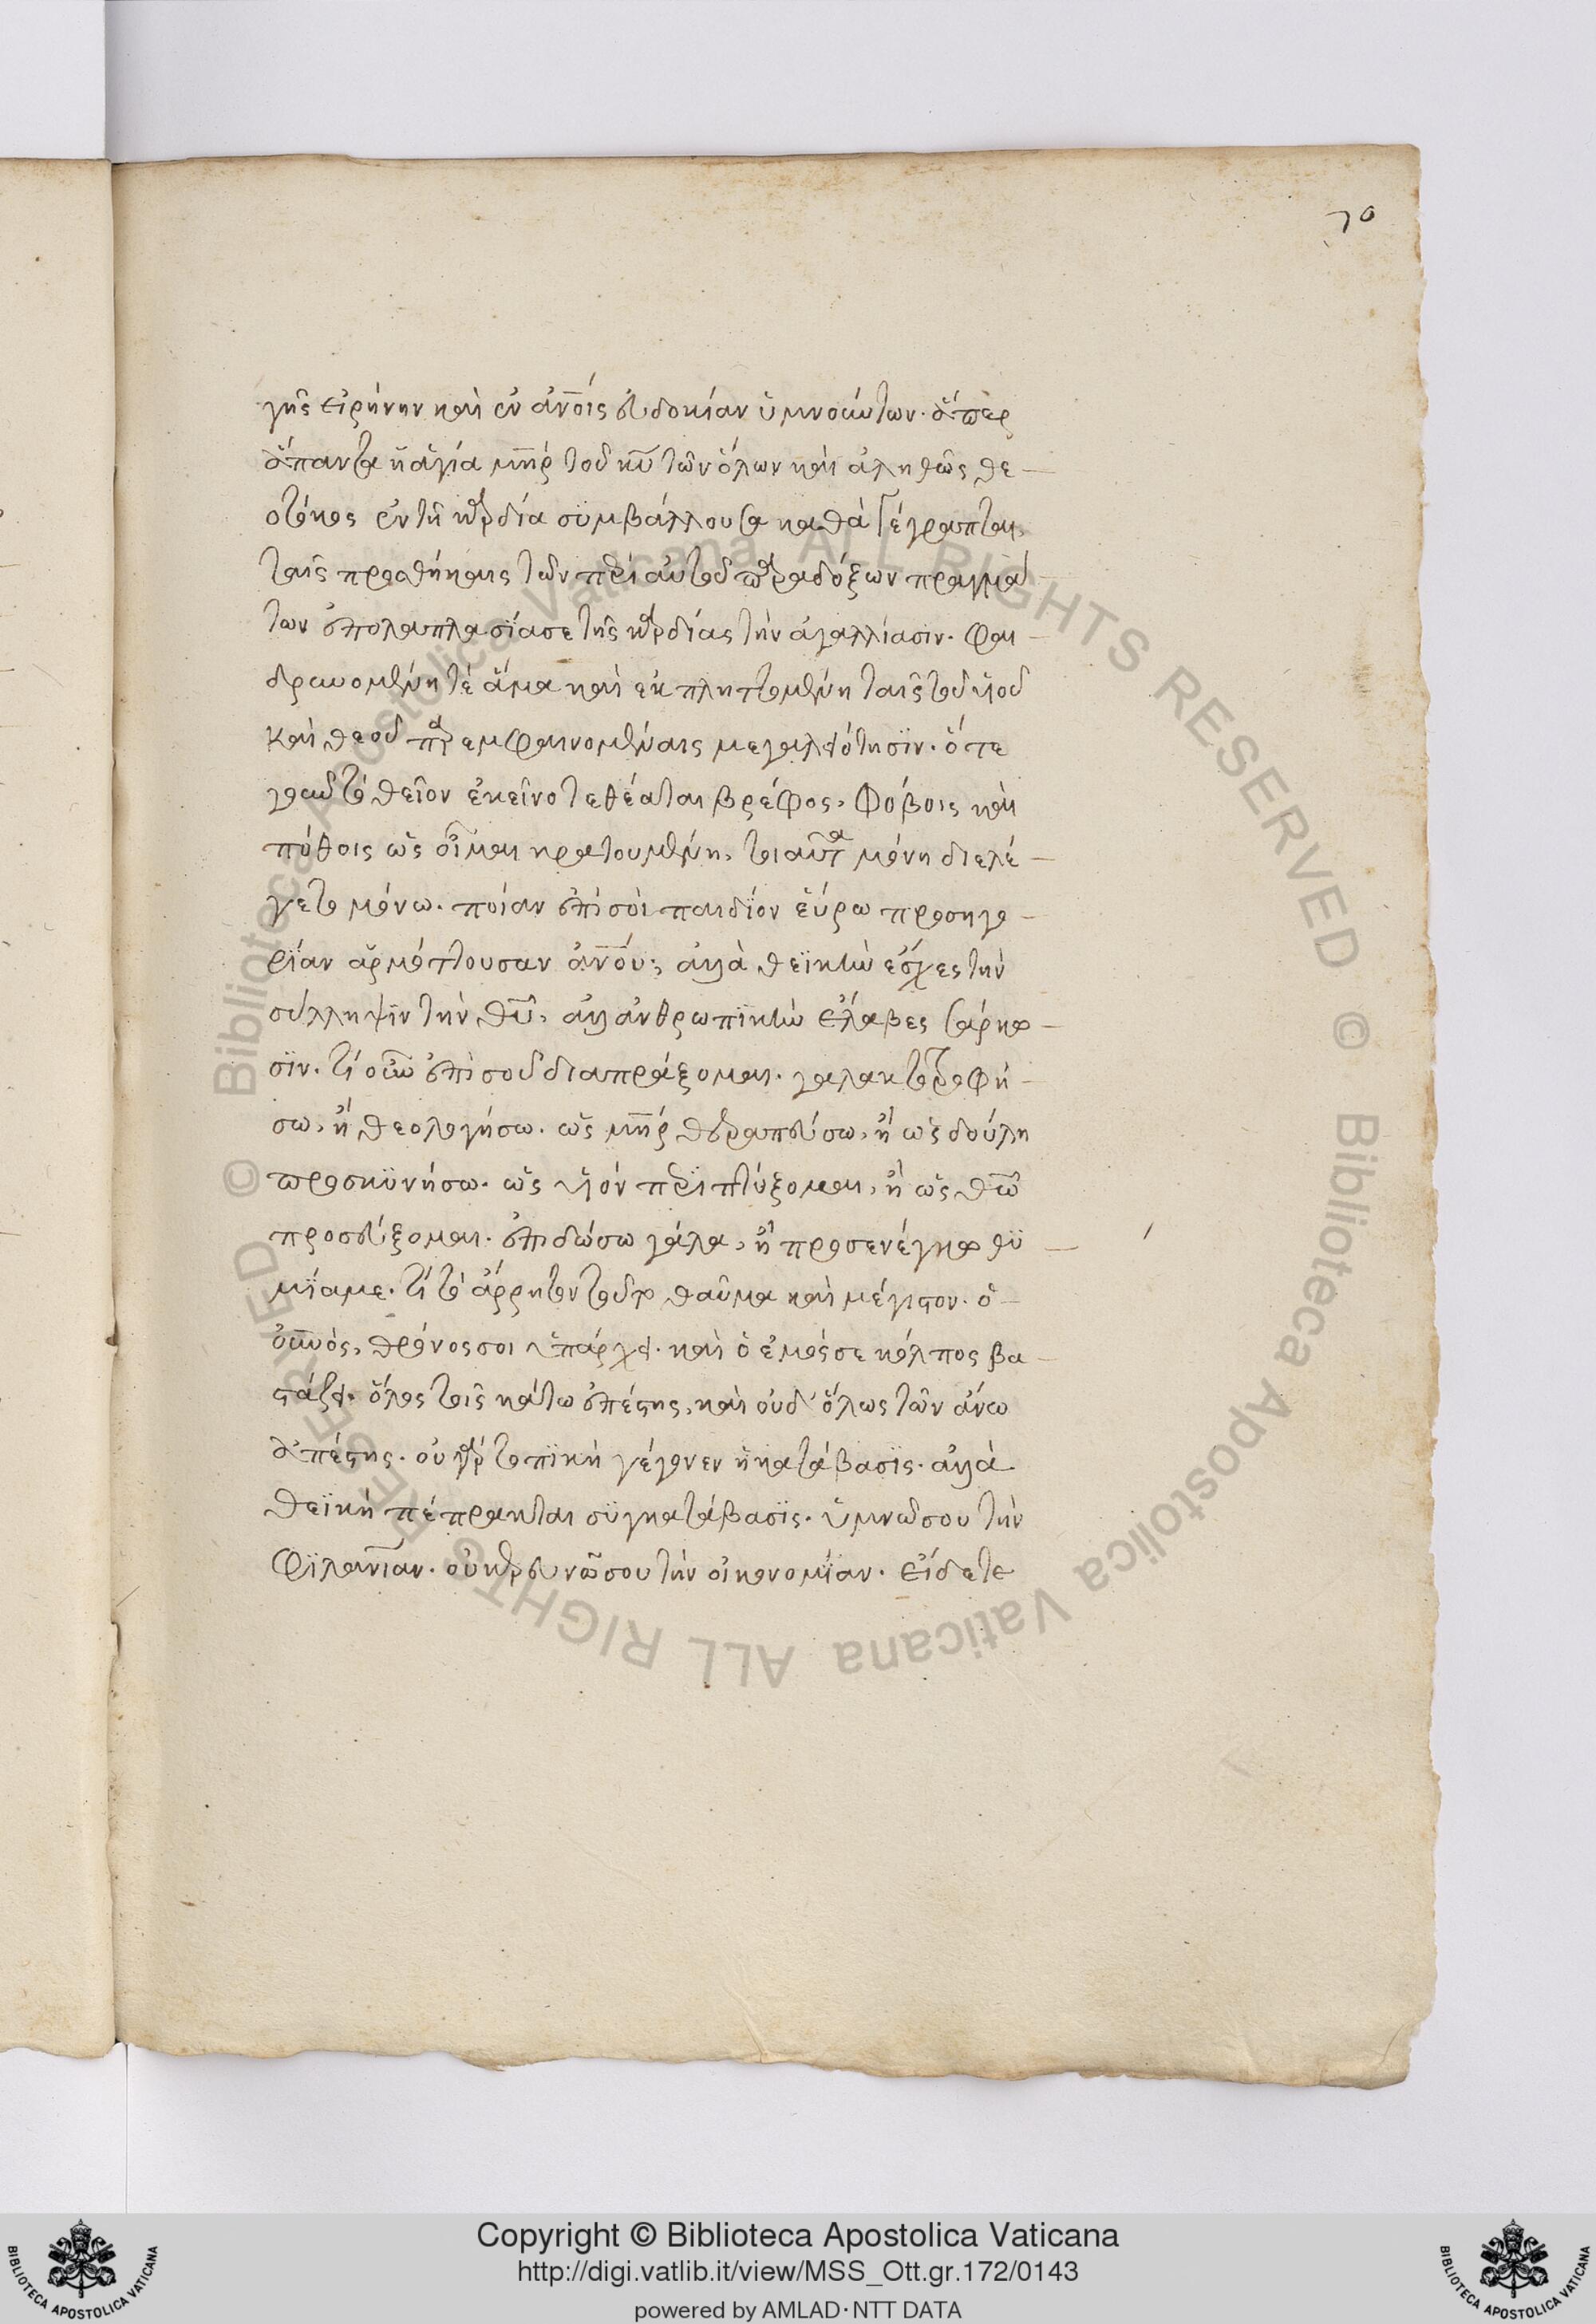 70
γῆς εἰρήνην καὶ ἐν ἀνοις εὐδοκίαν ὑμνούντων. ἅπερ
ἅπαντα ἡ ἁγία μηρ τοῦ κυ τῶν ὅλων καὶ ἀληθῶς θε-
οτόκος ἐν τῆ καρδία συμβάλλουσα καθὰ γέγραπται,
ταῖς προσθήκαις τῶν περὶ αὐτοῦ παραδόξων πραγμά
των ἐπολαπλασίασε τῆς καρδίας τὴν ἀγαλλίασιν. φαι-
δρυνομένη τὲ ἅμα καὶ ἐκπληττομένη ταῖς τοῦ υἱοῦ
καὶ θεοῦ παρεμφαινομέναις μεγαλειότησϊν. ὅτε
γοῦν τὸ θεῖον ἐκεῖνο τεθέαται βρέφος, φόβοις καὶ
πόθοις ὡς οἶμαι κρατουμένη, τοιαῦτα μόνη διελέ-
γετο μόνω. ποίαν ἐπὶ σοὶ παιδίον εὕρω προσηγο-
ρίαν ἁρμόττουσαν ἀνου; ἀλλὰ θεϊκὴν ἔσχες τὴν
σύλληψϊν τὴν θυ, ἀλλ ἀνθρωπϊκὴν ἔλαβες σάρκω-
σϊν. τί οὖν ἐπὶ σοῦ διαπράξομαι. γαλακτοτροφή-
σω, ἢ θεολογήσω. ὡς μηρ θεραπεύσω, ἢ ὡς δούλη
προσκϋνήσω. ὡς υἱὸν περιπτύξομαι, ἢ ὡς θῶ
προσεύξομαι. ἐπιδώσω γάλα, ἢ προσενέγκω θϋ-
μϊαμα. τί τὸ ἄρρητον τοῦτο θαῦμα καὶ μέγιστον. ὁ-
οὐνὸς, θρόνος σοι ὑπάρχει. καὶ ὁ ἐμὸς σε κόλπος βα-
στάζει. ὅλος τοῖς κάτω ἐπέστης, καὶ οὐδ' ὅλως τῶν ἄνω
ἀπέστης. οὐ γὰρ τοπϊκὴ γέγονεν ἡ κατάβασϊς. ἀλλὰ
θεϊκὴ πέπρακται συγκατάβασϊς. ὑμνῶ σου τὴν
φϊλανίαν. οὐκ ἐρευνῶ σου τὴν οἰκονομίαν. εἴδετε
Copyright © Biblioteca Apostolica Vaticana
http://digi.vatlib.it/view/MSS_Ott.gr.172/0143
powered by AMLAD·NTT DATA
BIBLIOTECA APOSTOLICA VATICANA
BIBLIOTECA APOSTOLICA VATICANA
© Biblioteca Apostolica Vaticana ALL RIGHTS RESERVED © Biblioteca Apostolica Vaticana ALL RIGHTS RESERVED